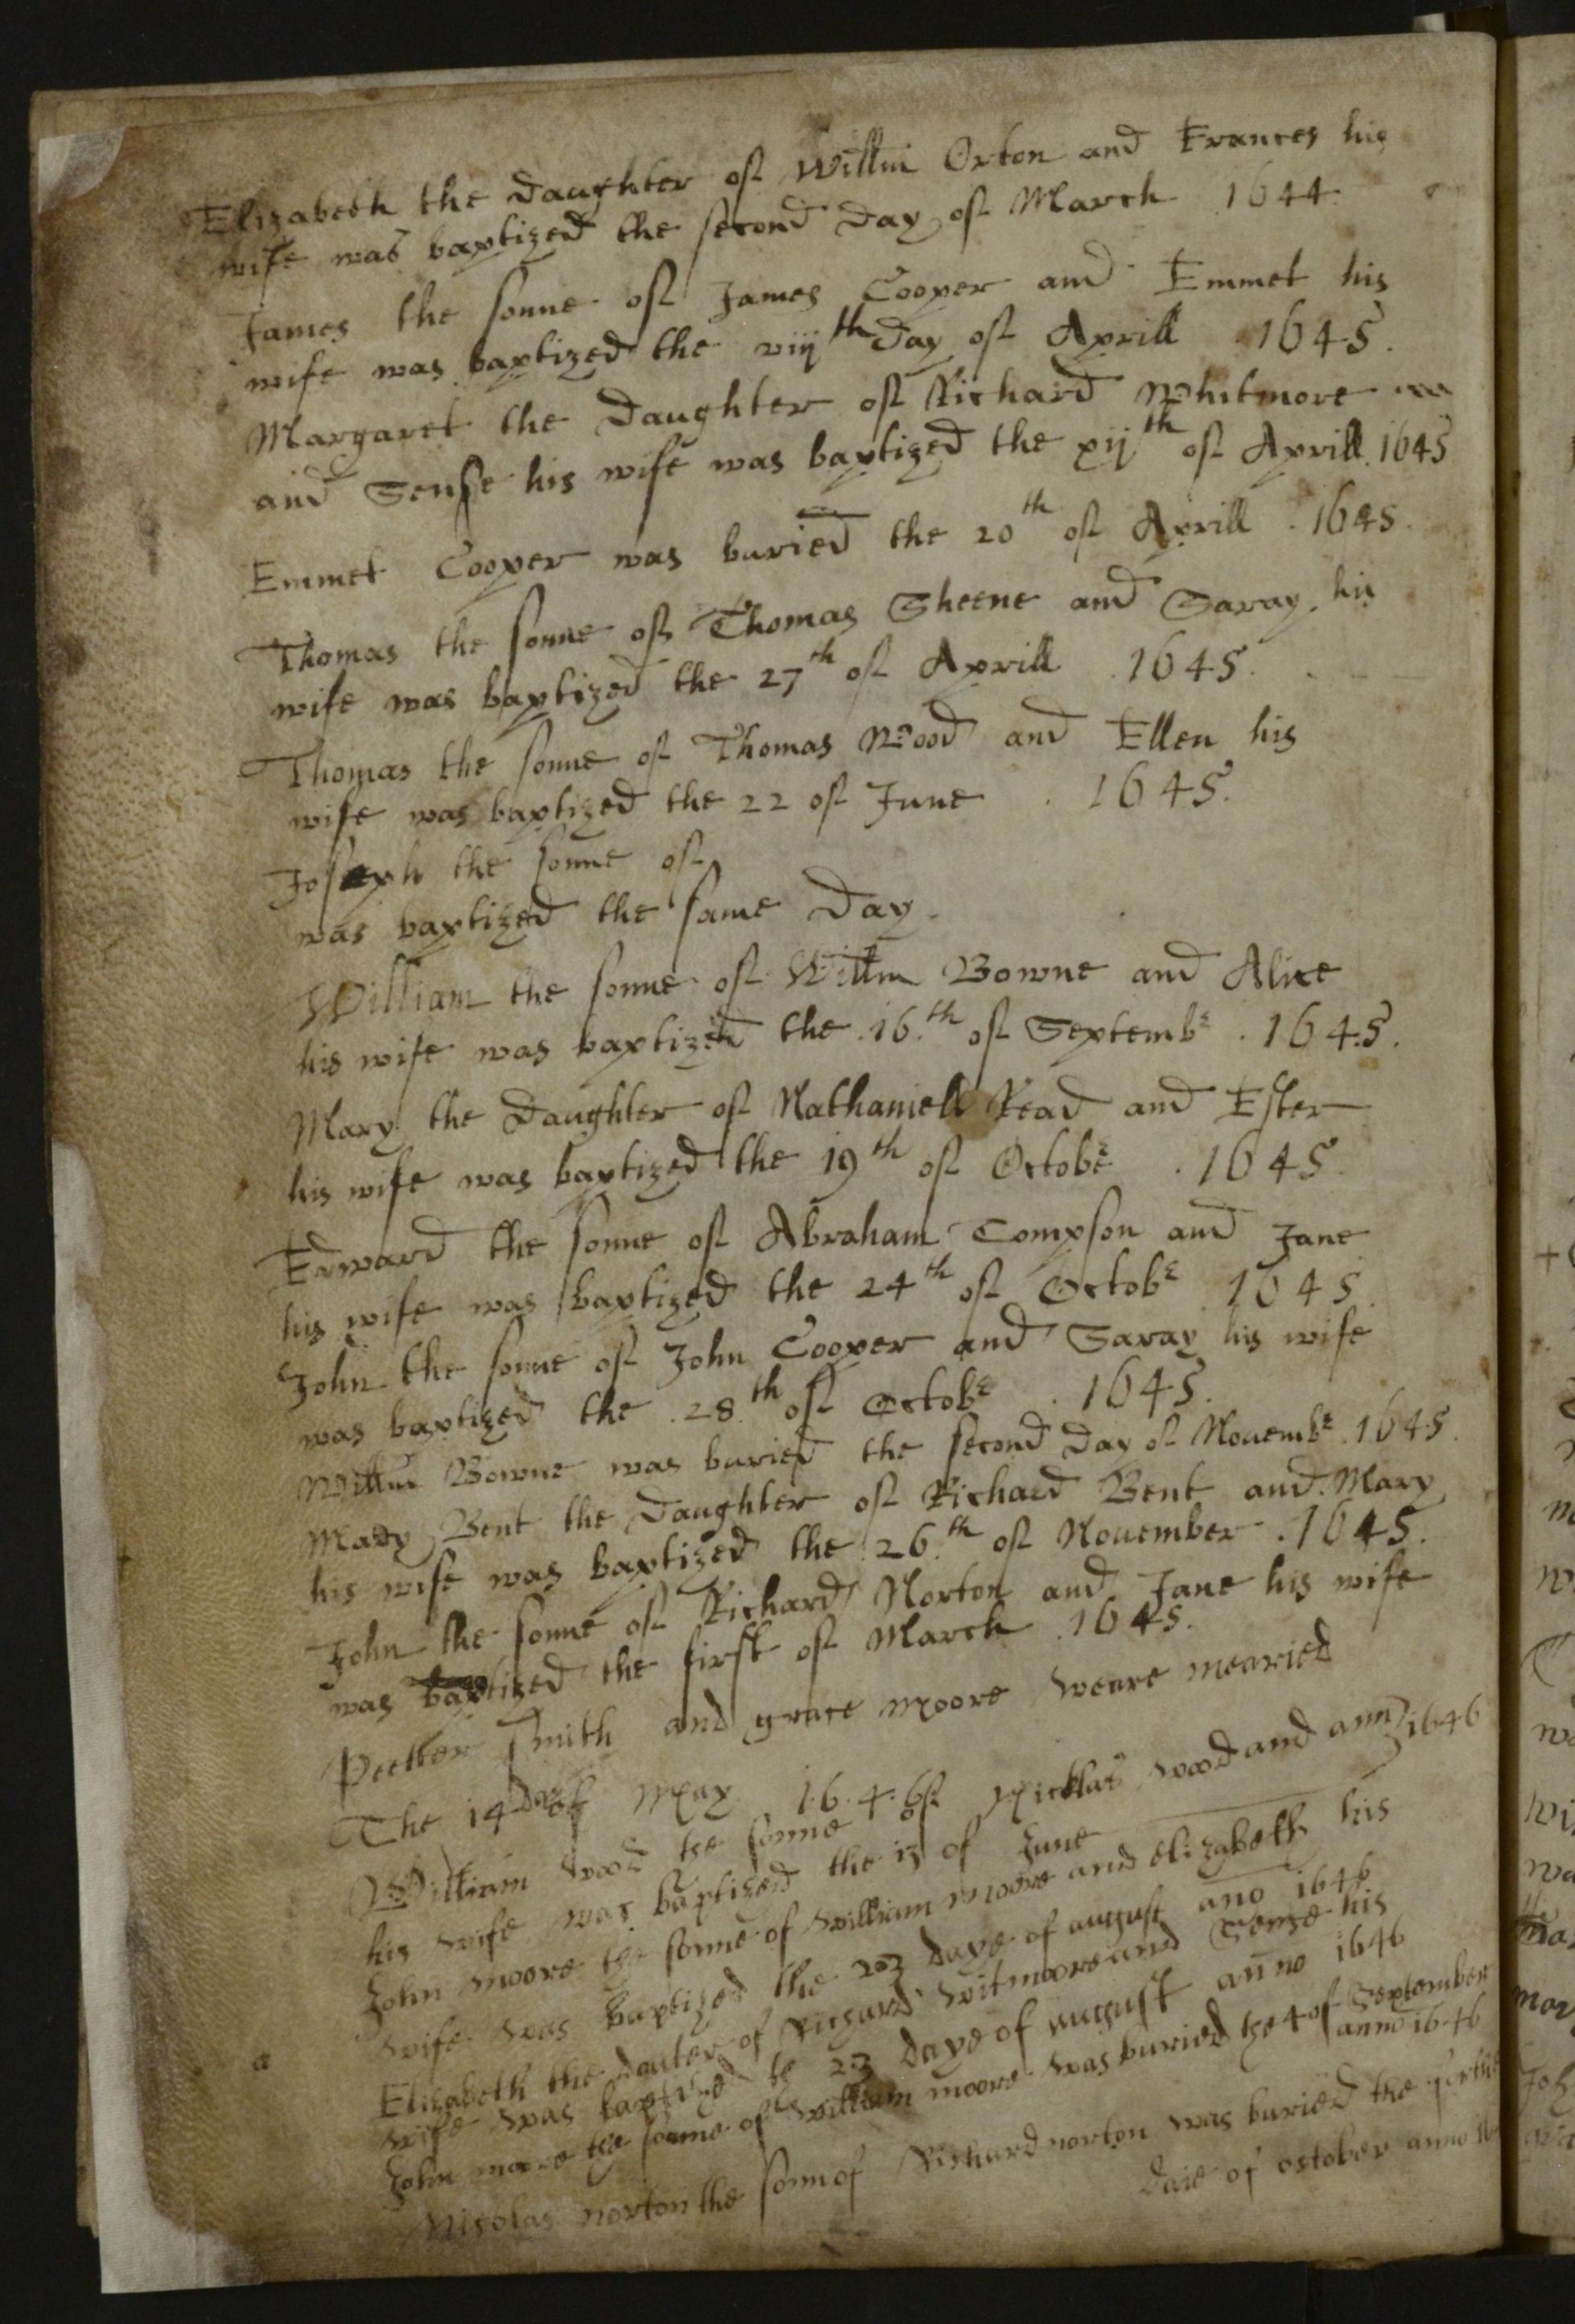 Elizabeth the daughter of Willm Orton and Frances his
wife was baptized the second day of March 1644.
James the sonne of James Cooper and Emmet his
wife was baptized the viijth day of Aprill 1645.
Margaret the daughter of Richard Whitmore
and Sense his wife was baptized the xijth of Aprill 1645
Emmet Cooper was buried the 20th of Aprill . 1645.
Thomas the sonne of Thomas Sheene and Saray his
wife was baptized the 27th of Aprill . 1645.
Thomas the sonne of Thomas Wood and Ellen his
wife was baptized the 22 of June . 1645.
Joseph the sonne of
was baptized the same day.
William the sonne of Willm Bowne and Alice
his wife was baptized the .16.th of Septembr . 1645.
Mary the daughter of Nathaniell Read and Ester
his wife was baptized the 19th of Octobr . 1645.
Edward the sonne of Abraham Compson and Jane
his wife was baptized the 24th of Octobr 1645.
John the sonne of John Cooper and Saray his wife
was baptized the .28.th of Octobr . 1645.
Willm Bowne was buried the second day of Nouembr . 1645.
Mary Bent the daughter of Richard Bent and Mary
his wife was baptized the .26.th of Nouember . 1645.
John the sonne of Richard Norton and Jane his wife
was baptized the first of March . 1645.
Peetter Smith and grace moore weare mearied
The 14 day of May 1.6.4.6
William wood the sonne of Nicklas wood and ann 1646
his wife was baptized the 13 of June
John moore the sonne of william moore and elizabeth his
wife was baptized the 23 daye of august ano 1646
Elizabeth the dauter of Richard witmoore and Sense his
wife was baptized te 23 daye of august anno 1646
John moore the sonne of william moore was buried the 4 of September
anno 1646
Nicolas norton the sonn of Richard norton was buried the
daie of october anno